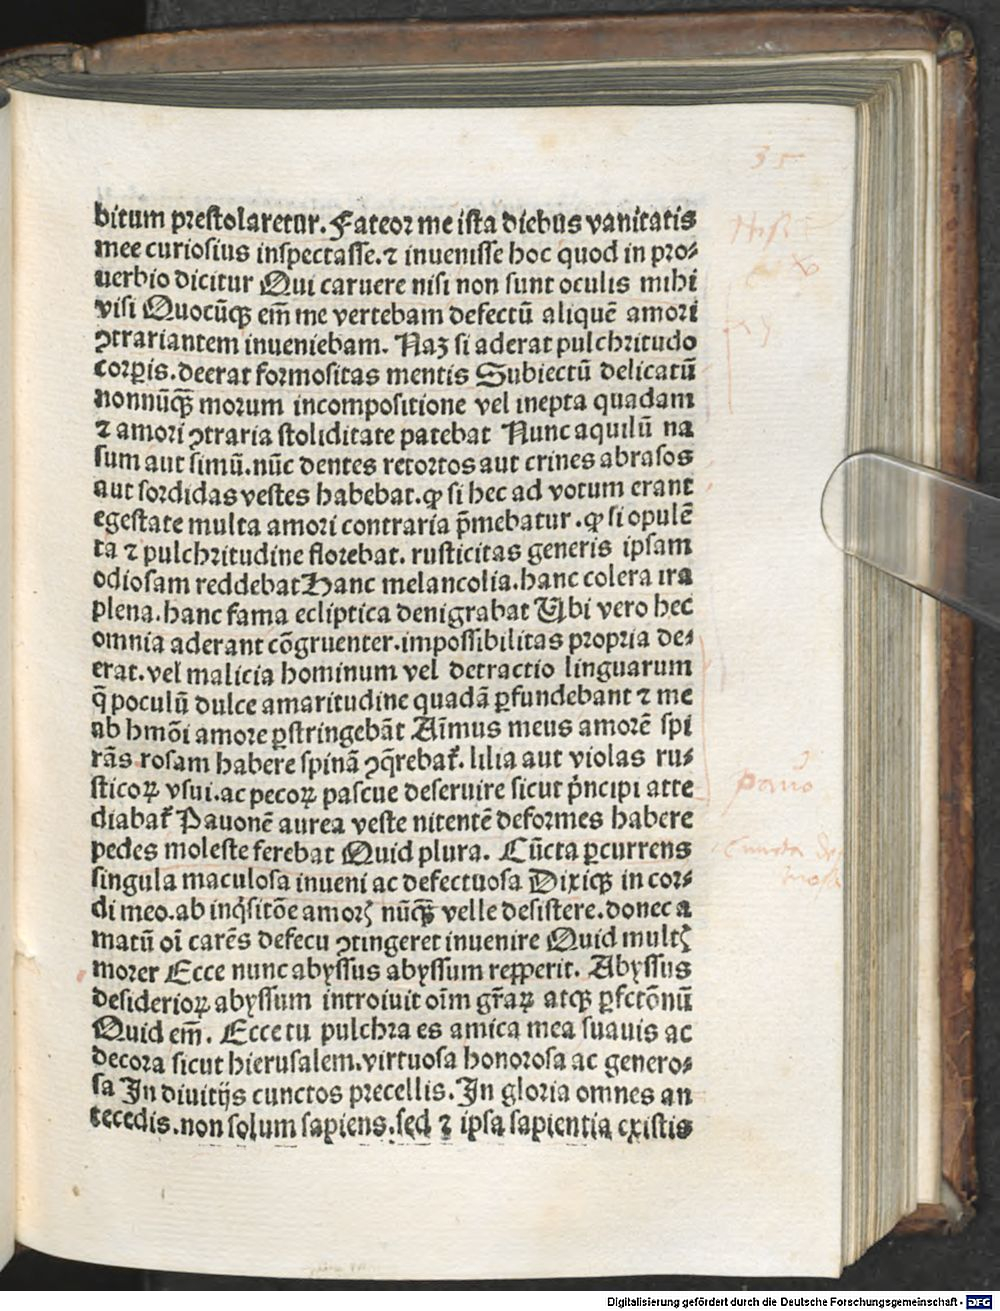 35
bitum prestolaretur. Fateor me ista diebus vanitatis
mee curiosius inspectasse. ⁊ inuenisse hoc quod in pro⸗
uerbio dicitur Qui caruere nisi non sunt oculis mihi
visi Quocūqꝫ em̄ me vertebam defectū aliquē amori
ꝯtrariantem inueniebam. Naꝫ si aderat pulchritudo
corꝑis. deerat formositas mentis Subiectū delicatū
nonnūqꝫ morum incompositione vel inepta quadam
⁊ amori ꝯtraria stoliditate patebat Nunc aquilū na
sum aut simū. nūc dentes retortos aut crines abrasos
aut sordidas vestes habebat. ꝙ si hec ad votum erant
egestate multa amori contraria p̄mebatur. ꝙ si opulē
ta ⁊ pulchritudine florebat. rusticitas generis ipsam
odiosam reddebat Hanc melancolia. hanc colera ira
plena. hanc fama ecliptica denigrabat Ubi vero hec
omnia aderant cōgruenter. impossibilitas propria de⸗
erat. vel malicia hominum vel detractio linguarum
q̄ poculū dulce amaritudine quadā ꝑfundebant ⁊ me
ab hmōi amore ꝑstringebāt Aīmus meus amorē spi
rās rosam habere spinā ꝯq̄rebat᷑. lilia aut violas ru⸗
sticoꝝ vsui. ac pecoꝝ pascue deseruire sicut p̄ncipi atte
diabat᷑ Pauonē aurea veste nitentē deformes habere
pedes moleste ferebat Quid plura. Cūcta ꝑcurrens
singula maculosa inueni ac defectuosa Dixiqꝫ in cor⸗
di meo. ab inq̇sitōe amorꝭ nūqꝫ velle desistere. donec a
matū oī carēs defecu ꝯtingeret inuenire Quid multꝭ
morer Ecce nunc abyssus abyssum repꝑerit. Abyssus
desiderioꝝ abyssum introiuit oīm gr̄aꝝ atqꝫ ꝑfctōnū
Quid em̄. Ecce tu pulchra es amica mea suauis ac
decora sicut hierusalem. virtuosa honorosa ac genero⸗
sa In diuitijs cunctos precellis. In gloria omnes an
tecedis. non solum sapiens. sed ⁊ ipsa sapientia existis
Digitalisierung gefördert durch die Deutsche Forschungsgemeinschaft - DFG